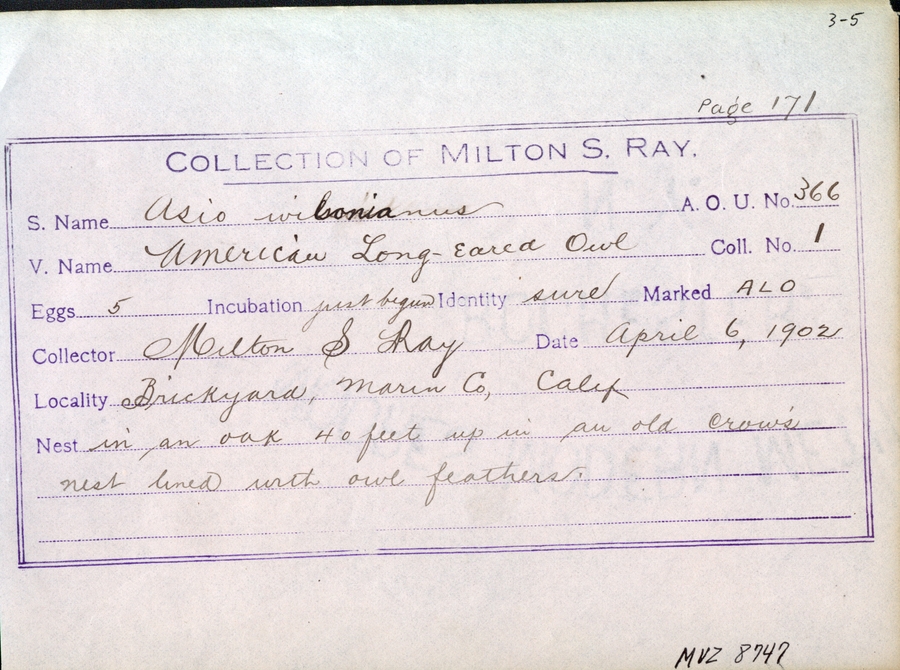 3-5
Page 171
COLLECTION OF MILTON S. RAY.
S. Name Asio wilsonianus A. O. U. No. 366
V. Name American Long-Eared Owl Coll. No. 1
Eggs 5 Incubation just begun Identity sure Marked ALO
Collector Milton S Ray Date April 6, 1902
Locality Brickyard, Marin Co, Calif
Nest in an oak 40 feet up in an old crow's
nest lined with owl feathers.
MVZ 8747